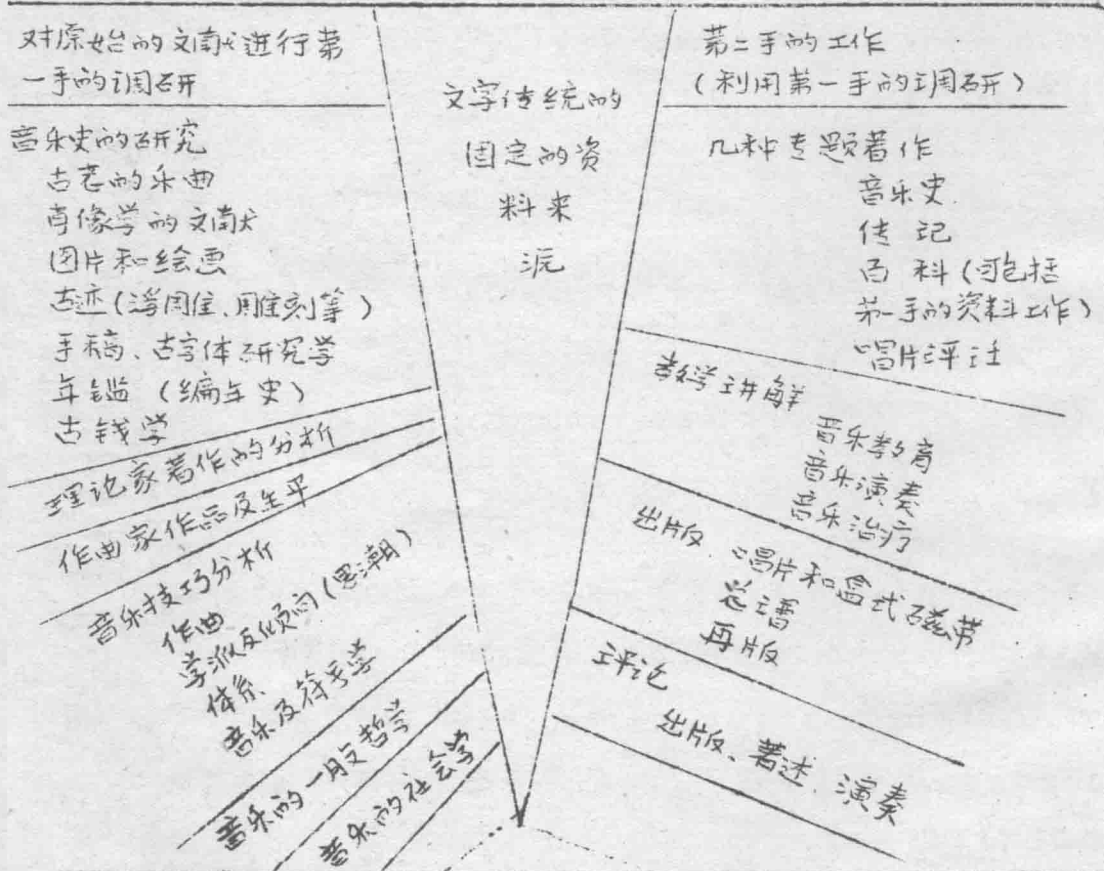 对原始的文献进行第
一手的调研
音乐史的研究
古老的乐曲
肖像学的文献
图片和绘画
古迹(浮雕、雕刻等)
手稿、古字体研究学
年鉴(编年史)
古钱学
理论家著作的分析
作曲家作品及生平
音乐技巧分析
作曲
学派及倾向(思潮)
体系
音乐及符号学
音乐的一般哲学
音乐的社会学
文字传统的
固定的资
料来
源
第二手的工作
(利用第一手的调研)
几种专题著作
音乐史
传记
百科(可包括
第一手的资料工作)
唱片评注
教学讲解
音乐教育
音乐演奏
音乐治疗
出版、唱片和盒式磁带
总谱
再版
评论
出版、著述、演奏